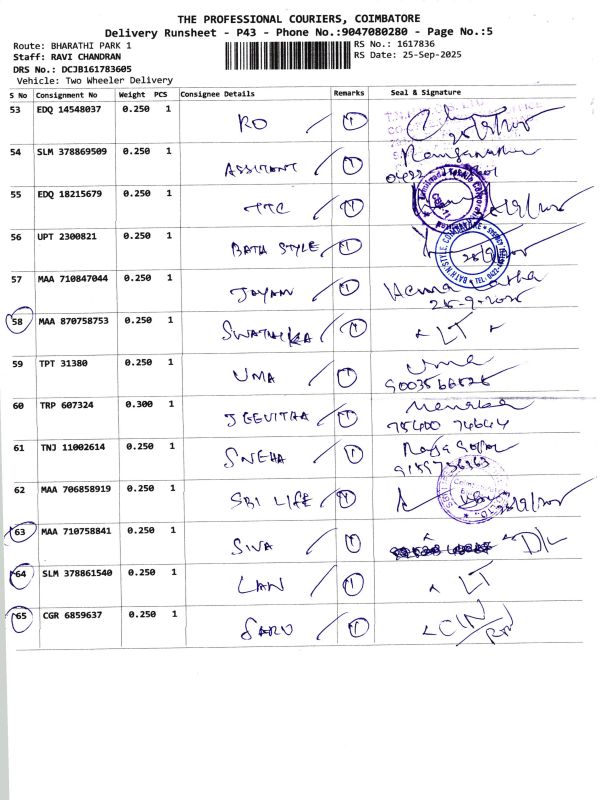 THE PROFESSIONAL COURIERS, COIMBATORE
Delivery Runsheet - P43 - Phone No.:9047080280 - Page No.:5
Route: BHARATHI PARK 1 RS No.: 1617836
Staff: RAVI CHANDRAN RS Date: 25-Sep-2025
DRS No.: DCJB161783605
Vehicle: Two Wheeler Delivery
S No Consignment No Weight PCS Consignee Details Remarks Seal & Signature
53 EDQ 14548037 0.250 1 RO
54 SLM 378869509 0.250 1 ASSITANT
55 EDQ 18215679 0.250 1 TTC
56 UPT 2300821 0.250 1 BATH STYLE
57 MAA 710847044 0.250 1 JAYAM
25-9-2025
58 MAA 870758753 0.250 1 SWATHIKA LT
59 TPT 31380 0.250 1 UMA Uma
60 TRP 607324 0.300 1 JEEVITHA
61 TNJ 11002614 0.250 1 SNEHA
62 MAA 706858919 0.250 1 SBI LIFE
63 MAA 710758841 0.250 1 SIVA D/L
64 SLM 378861540 0.250 1 LAN LT
65 CGR 6859637 0.250 1 SARU CIN/